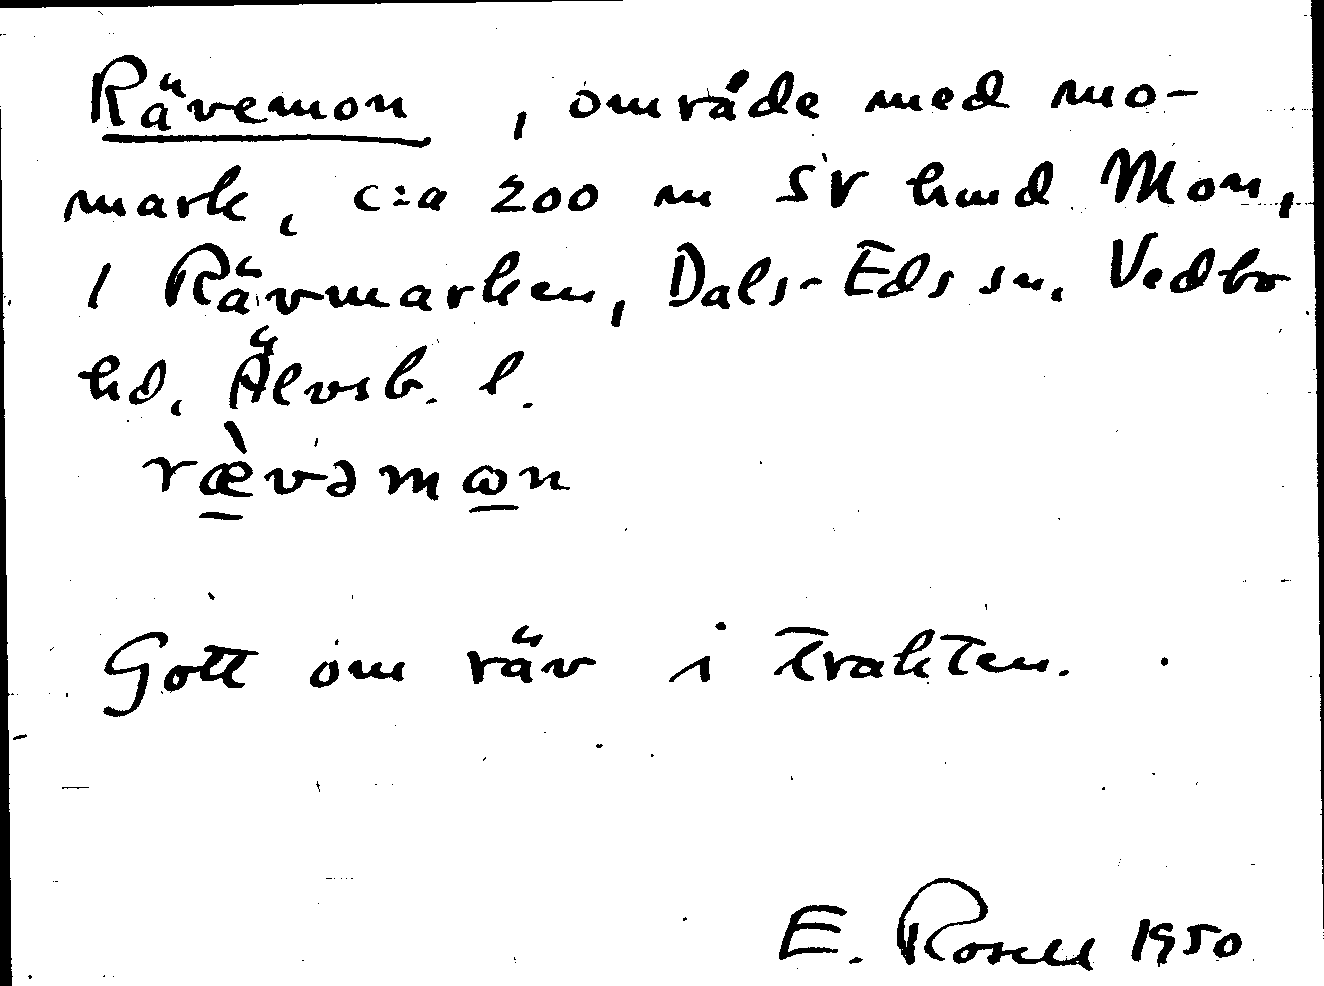 Rävemon, område med mo-
mark, c:a 200 m SV hmd Mon,
1 Rävmarken, Dals-Eds sn. Vedbo
hd. Älvsb. l.
ræ̀vəmωn
Gott om räv i trakten.
E. Rosell 1950